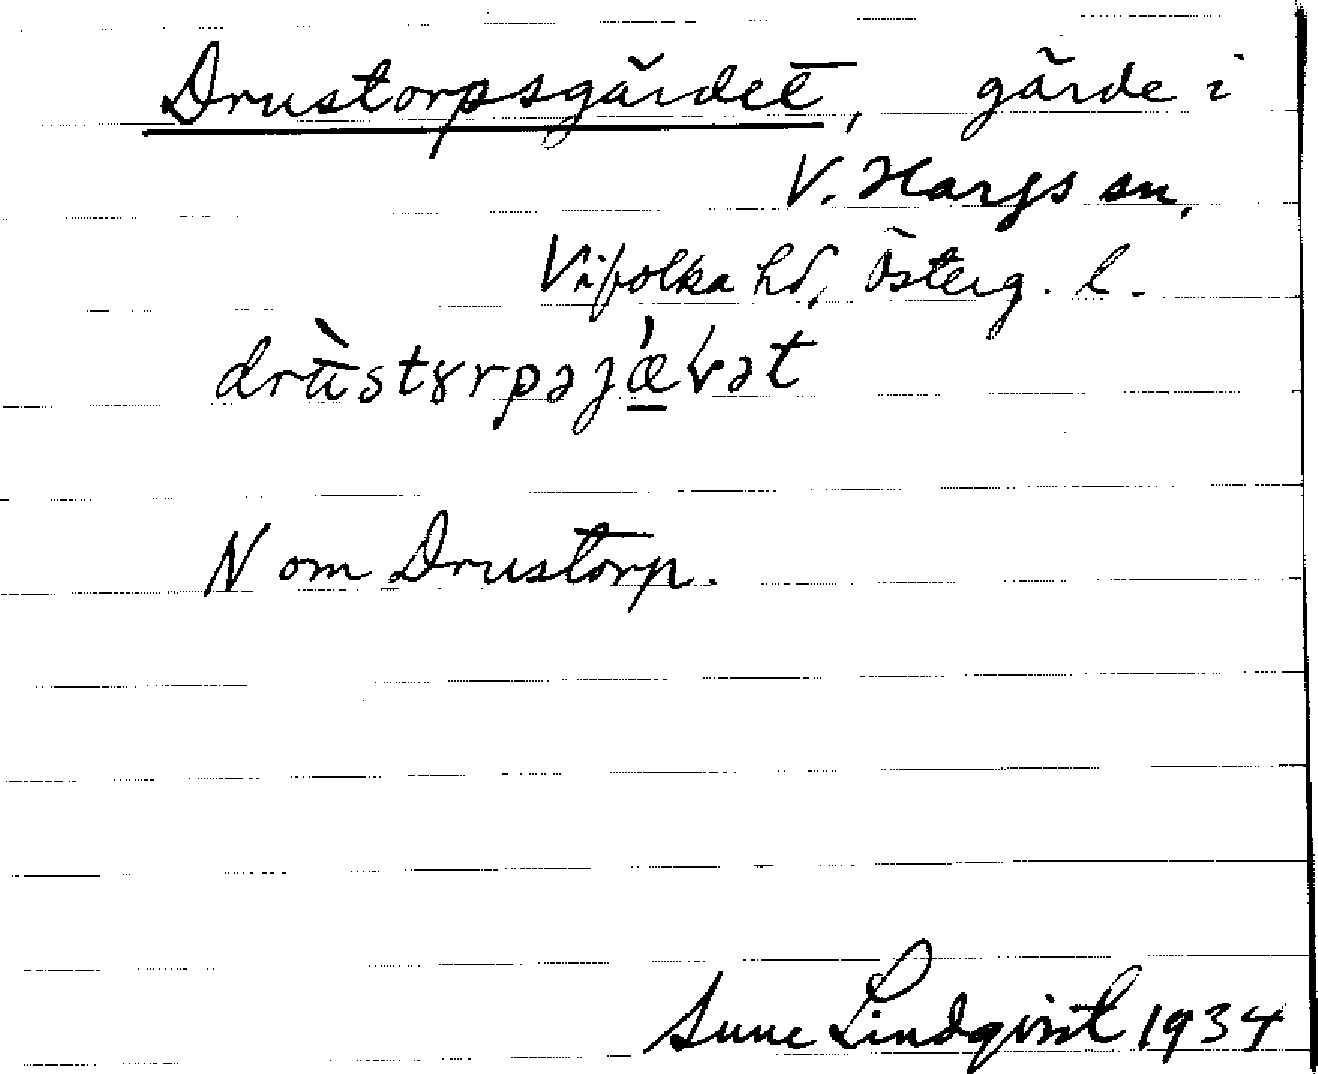 Drustorpsgärdet, gärde i
V. Hargs sn,
Vifolka hd, Österg. l.
N om Drustorp.
Sune Lindqvist 1934